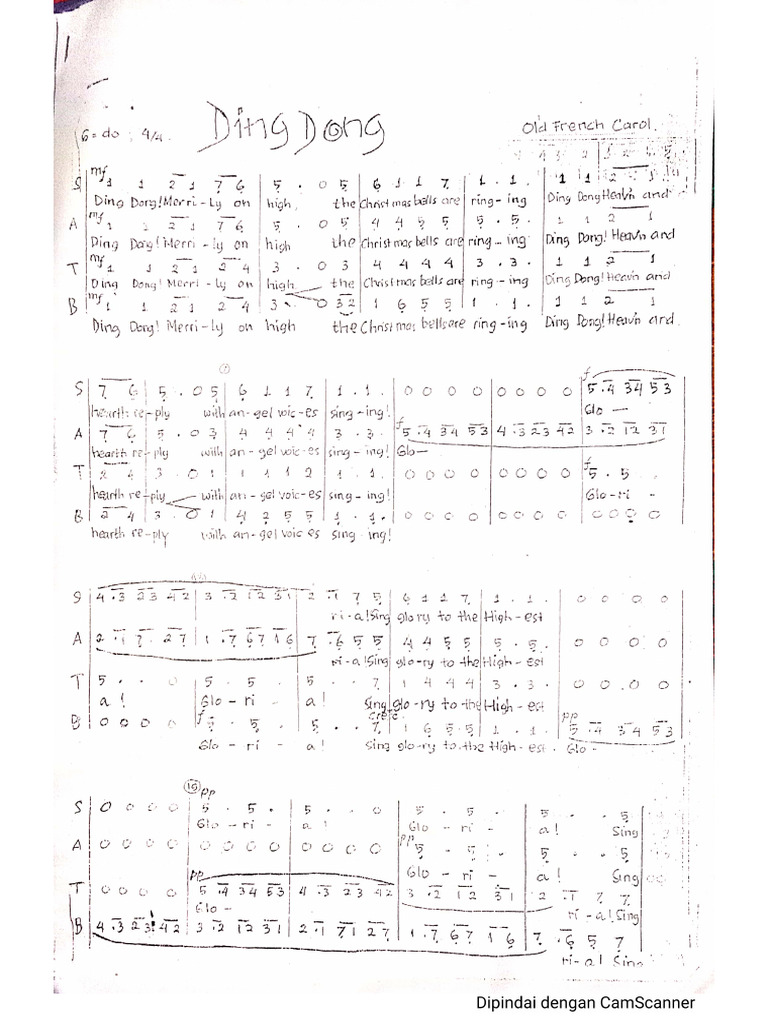 Ding Dong
G = do ; 4/4.
Old French Carol.
S mf 1 1 2 1 7 6 | 5 . 0 5 | 6 1 1 7 | 1 . 1 . | 1 1 2 1
Ding Dong! Merri-ly on high, the Christmas bells are ring-ing Ding Dong Heav'n and
A mf 1 1 2 1 7 6 | 5 . 0 5 | 4 4 5 5 | 5 . 5 . | 1 1 2 1
Ding Dong! Merri-ly on high the Christmas bells are ring-ing Ding Dong! Heav'n and
T mf 1 1 2 1 2 4 | 3 . 0 3 | 4 4 4 4 | 3 . 3 . | 1 1 2 1
Ding Dong! Merri-ly on high the Christmas bells are ring-ing Ding Dong! Heav'n and
B mf 1 1 2 1 2 4 | 3 . 0 3 2 | 1 6 5 5 | 1 . 1 . | 1 1 2 1
Ding Dong! Merri-ly on high the Christmas bells are ring-ing Ding Dong! Heav'n and
S 7 6 | 5 . 0 5 | 6 1 1 7 | 1 . 1 . | 0 0 0 0 | 0 0 0 0 | f 5 . 4 3 4 5 3
hearth re-ply with an-gel voic-es sing-ing! Glo-
A 7 6 | 5 . 0 3 | 4 4 4 4 | 3 . 3 . | f 5 . 4 3 4 5 3 | 4 . 3 2 3 4 2 | 3 . 2 1 2 3 1
hearth re-ply with an-gel voic-es sing-ing! Glo-
T 2 4 | 3 . 0 1 | 1 1 1 2 | 1 . 1 . | 0 0 0 0 | 0 0 0 0 | f 5 . 5 .
hearth re-ply with an-gel voices sing-ing! Glo-ri-
B 2 4 | 3 . 0 1 | 4 2 5 5 | 1 . 1 . | 0 0 0 0 | 0 0 0 0 | 0 0 0 0
hearth re-ply with an-gel voic es sing-ing!
S 4 . 3 2 3 4 2 | 3 . 2 1 2 3 1 | 2 . 1 7 5 | 6 1 1 7 | 1 . 1 . | 0 0 0 0
ri-a! Sing glory to the High-est
A 2 . 1 7 . 2 7 | 1 . 7 6 7 1 6 | 7 . 6 5 5 | 4 4 5 5 | 5 . 5 . | 0 0 0 0
ri-a! Sing glo-ry to the High-est
T 5 . . 0 | 5 . 5 . | 5 . . 7 | 1 4 4 4 | 3 . 3 . | 0 0 . 0 0
a! Glo-ri-a! Sing glo-ry to the High-est
B 0 0 0 0 | f 5 . 5 . | 5 . . 7 | 1 6 5 5 | 1 . 1 . | pp 5 . 4 3 4 5 3
Glo-ri-a! Sing glo-ry to the High-est. Glo-
19
S 0 0 0 0 | pp 5 . 5 . | 5 . . 0 | 5 . 5 . | 5 . . 5
Glo-ri-a! Glo-ri-a! Sing
A 0 0 0 0 | 0 0 0 0 | 0 0 0 0 | pp 5 . 5 . | 5 . . 5
Glo-ri-a! Sing
T 0 0 0 0 | pp 5 . 4 3 4 5 3 | 4 . 3 2 3 4 2 | 3 . 2 1 2 3 1 | 2 . 1 7 7
Glo- ri-a! Sing
B 4 . 3 2 3 4 2 | 3 . 2 1 2 3 1 | 2 . 1 7 1 2 7 | 1 . 7 6 7 1 6 | 7 . 6 5 7
ri-a! Sing
Dipindai dengan CamScanner